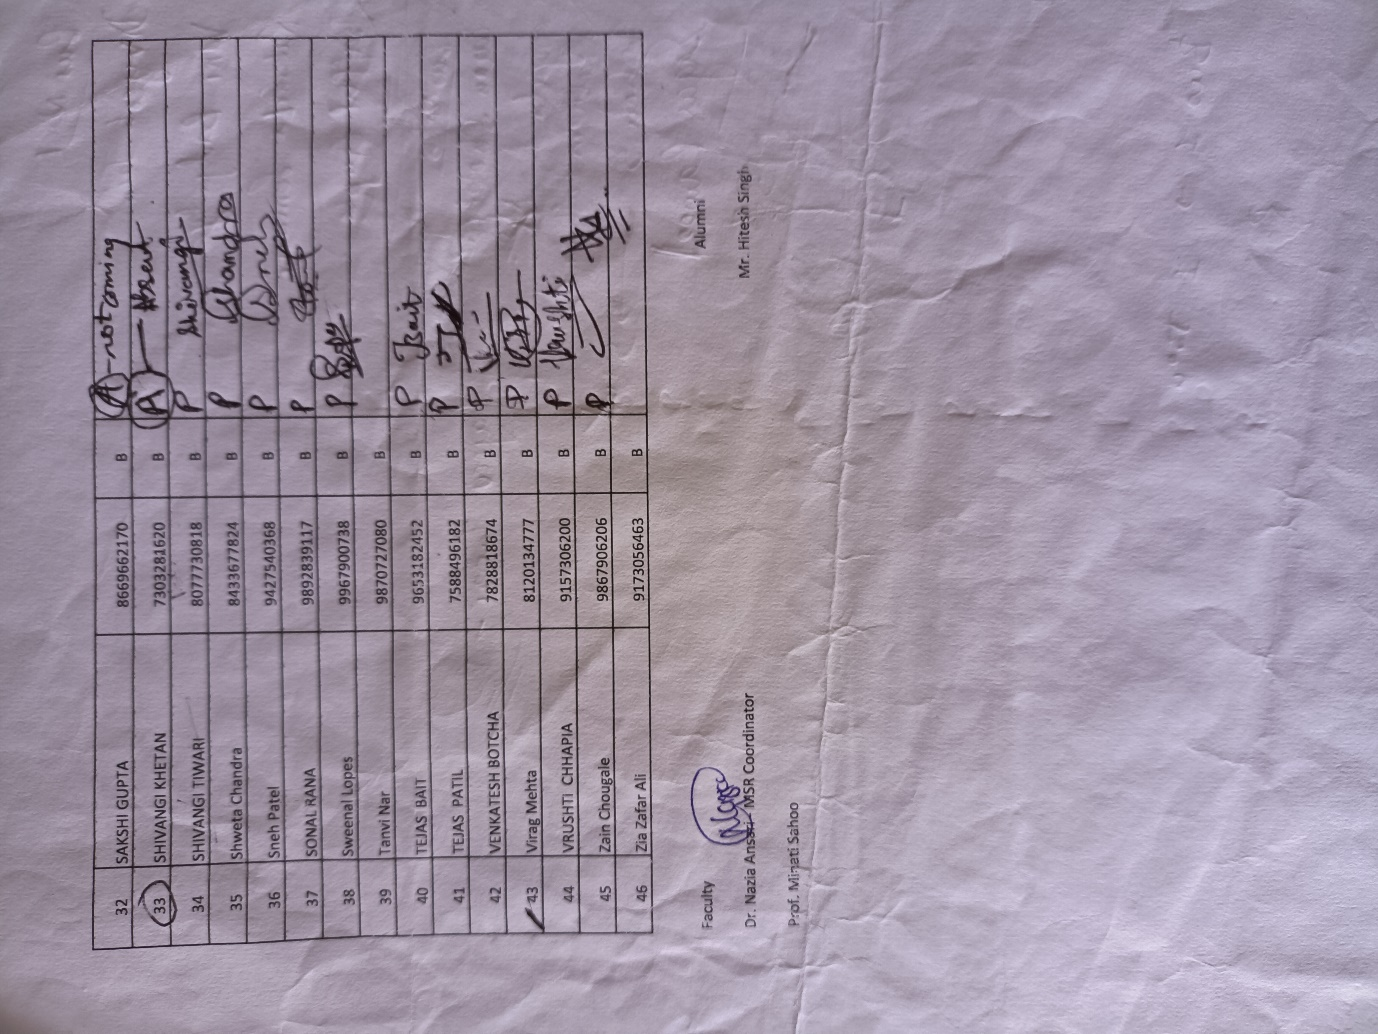 32 SAKSHI GUPTA 8669662170 B A - not coming
33 SHIVANGI KHETAN 7303281620 B A - Absent
34 SHIVANGI TIWARI 8077730818 B P Shivangi
35 Shweta Chandra 8433677824 B P Chandra
36 Sneh Patel 9427540368 B P Sneh
37 SONAL RANA 9892839117 B P
38 Sweenal Lopes 9967900738 B P
39 Tanvi Nar 9870727080 B
40 TEJAS BAIT 9653182452 B P Bait
41 TEJAS PATIL 7588496182 B P
42 VENKATESH BOTCHA 7828818674 B P
43 Virag Mehta 8120134777 B P
44 VRUSHTI CHHAPIA 9157306200 B P Vrushti
45 Zain Chougale 9867906206 B P
46 Zia Zafar Ali 9173056463 B
Faculty Alumni
Dr. Nazia Ansari- MSR Coordinator Mr. Hitesh Singh
Prof. Minati Sahoo